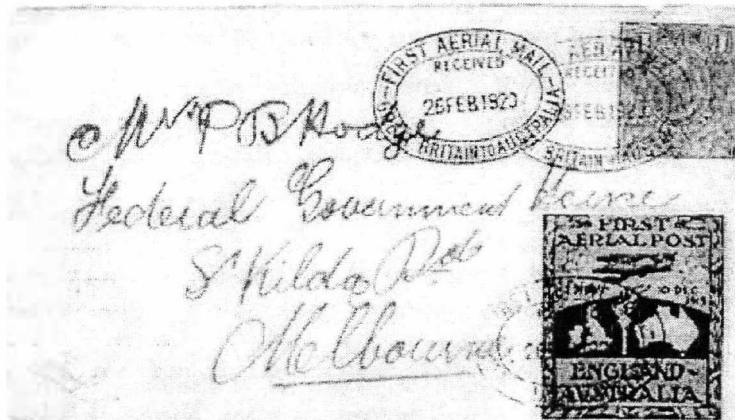 FIRST AERIAL MAIL
RECEIVED
26 FEB 1920
GREAT BRITAIN TO AUSTRALIA
RECEIVED
BRITAIN
Mr P B Hodge
Federal Government House
St Kilda Rd
Melbourne
FIRST
AERIAL POST
ENGLAND-
AUSTRALIA